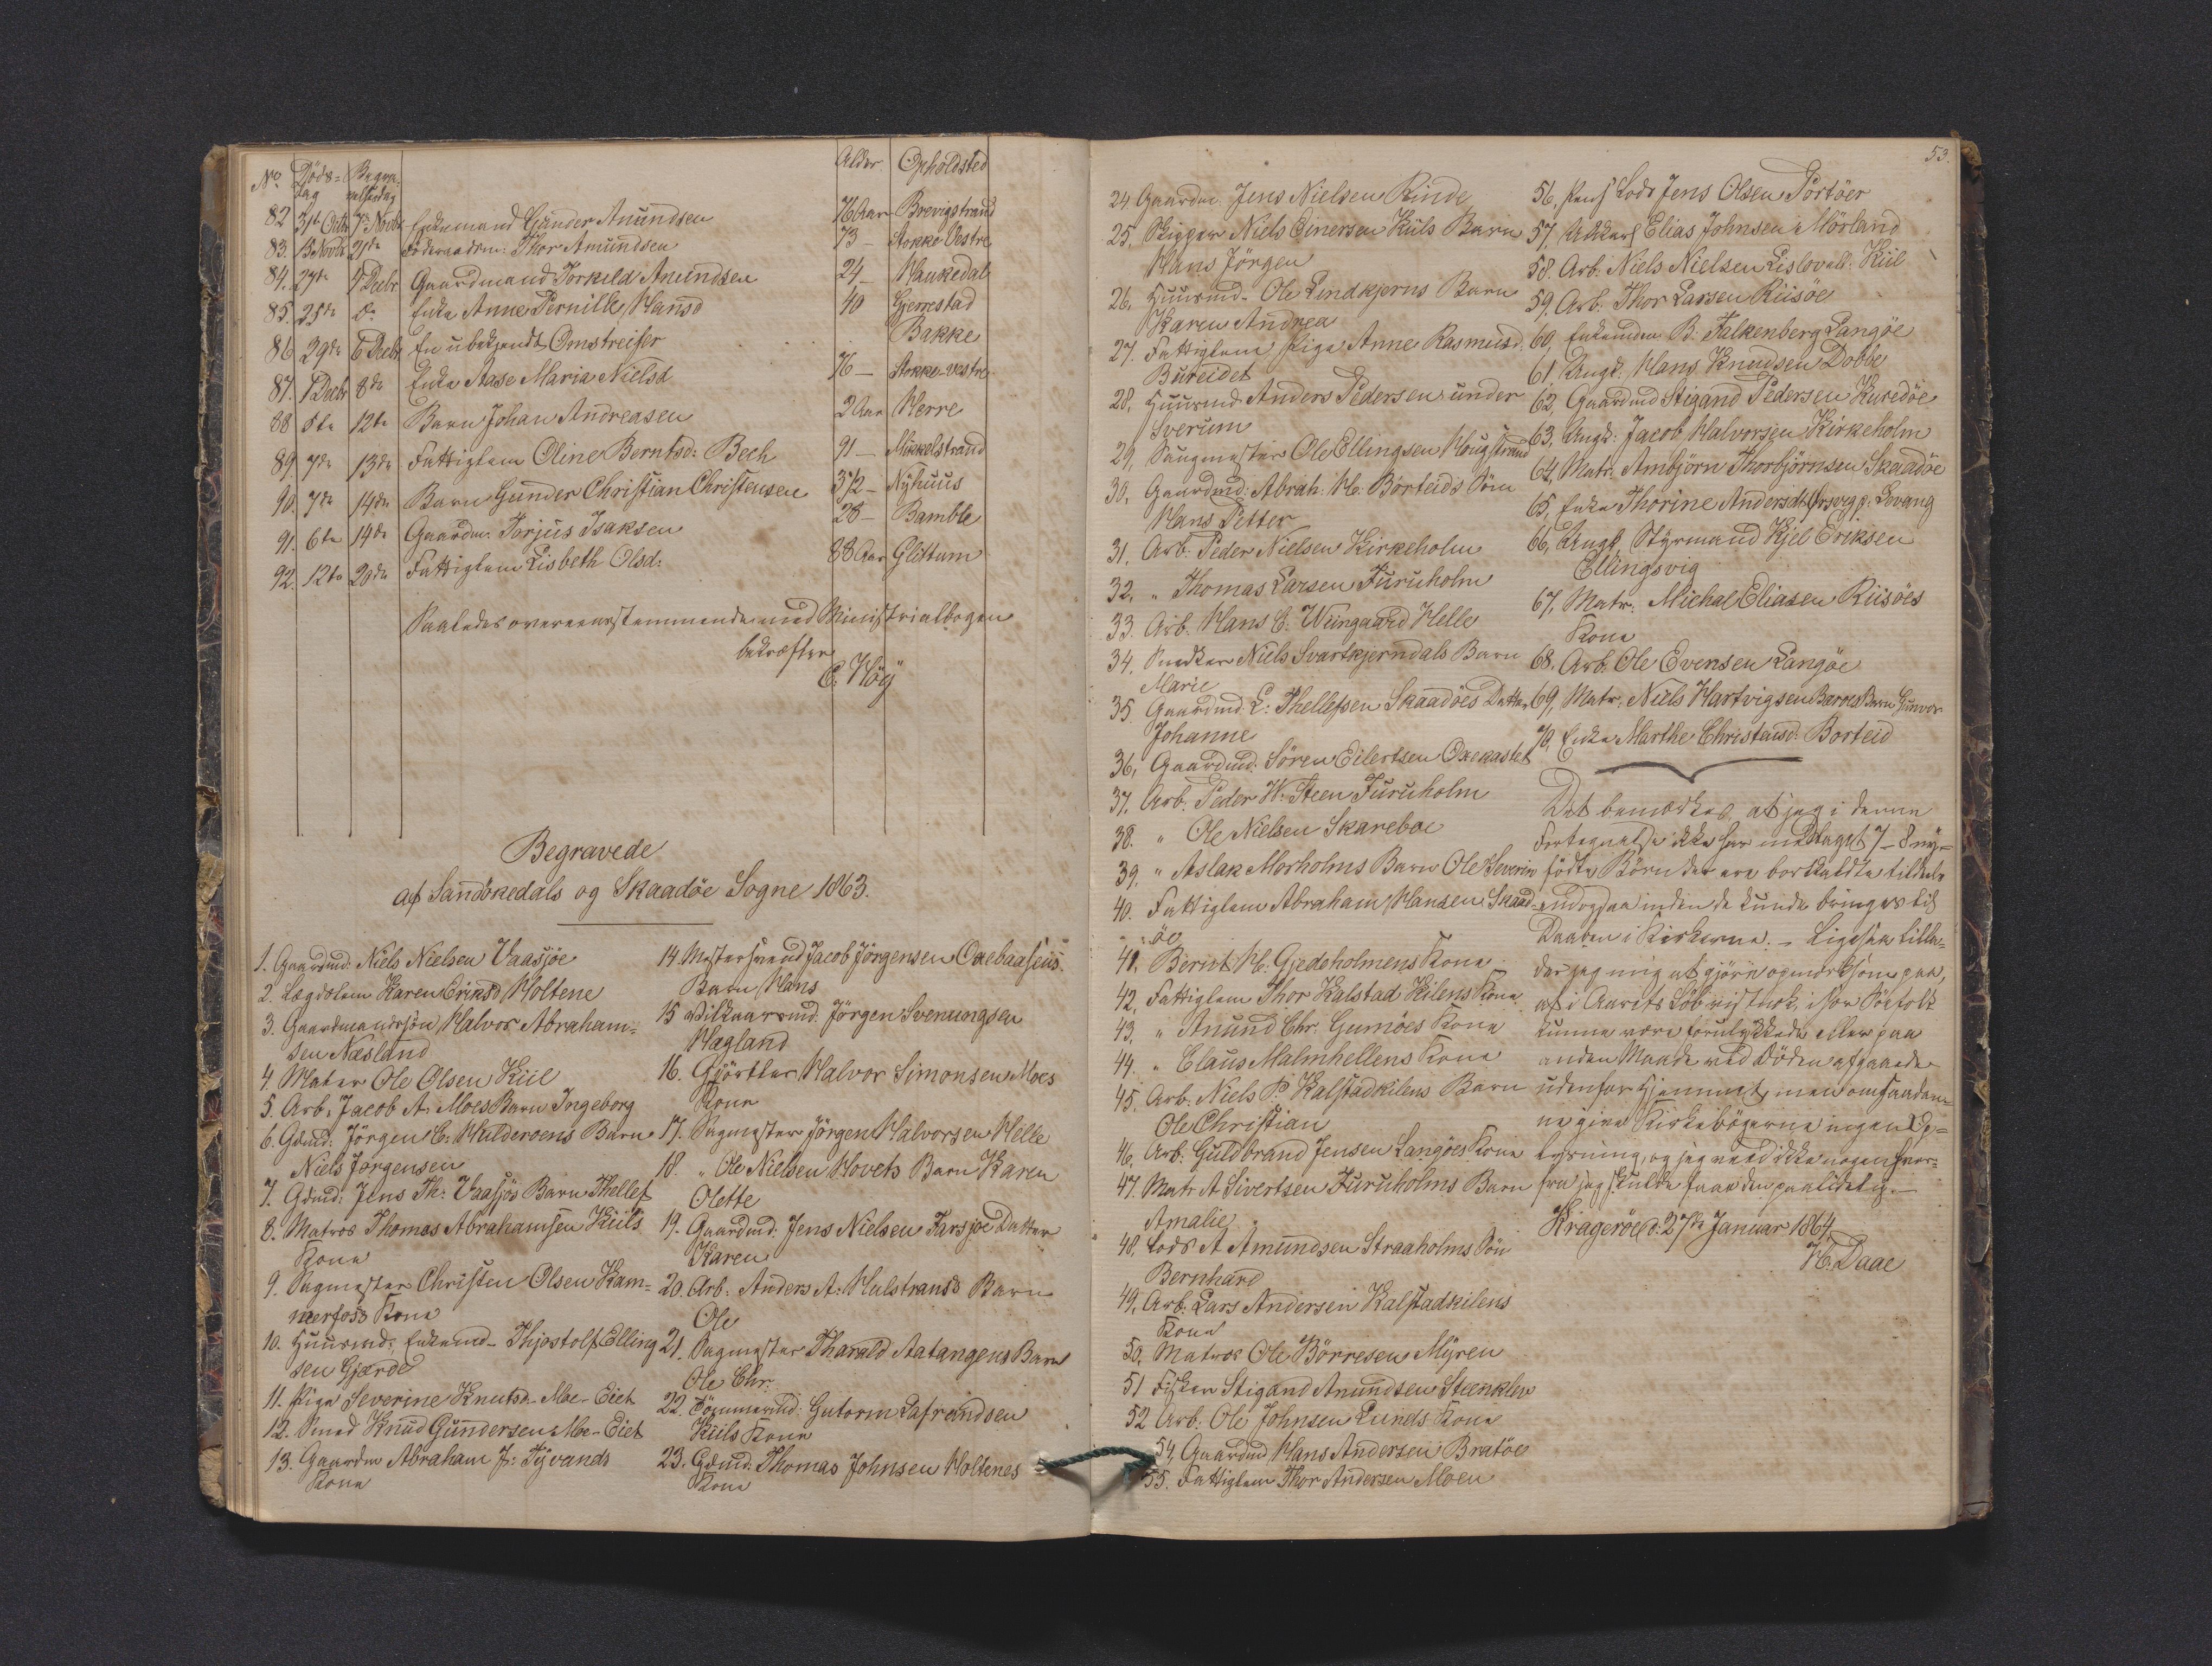 No Døds= Begra- Alder Opholdsted
dag velsesdag
82 31te Octbr 7de Novbr Enkemand Gunder Amundsen 76 Aar Brevigstrand
83. 15 Novbr 21de Föderaadsm: Thor Amundsen 73 — Stokke Vestre
84. 27de 5 Decbr Gaardmand Torkild Amundsen 24 — Haukedal
85. 25de do Enke Anne Pernille Hansd 40 Gjerrestad
86 29de 6 Decbr En ubekjendt Omstreifer Bakke
87. 1 Decbr 8de Enke Aase Maria Nielsd 76 — Stokke-vestre
88 5te 12te Barn Johan Andreasen 2 Aar Herre
89. 7de 13de Fattiglem Oline Berntsd: Bech 91 — Mikkelstrand
90. 7de 14de Barn Gunder Christian Christensen 3 1/2 — Nyhuus
91. 6te 14de Gaardm. Torjus Isaksen 28 — Bamble
92. 12te 20de Fattiglem Lisbeth Olsd: 88 Aar Glittum
Saaledes overeensstemmende med Ministrialbogen
bekræfter
C. Höy
Begravede
af Sandökedals og Skaadöe Sogne 1863.
1. Gaardmd. Niels Nielsen Vaasjöe
2. Lægdslem Karen Eriksd. Holtene
3. Gaardmandssön Halvor Abraham=
sen Næsland
4. Mater Ole Olsen Kiil
5. Arb. Jacob A. Moes Barn Ingeborg
6. Gdmd: Jörgen C. Hulderoens Barn
Niels Jørgensen
7. Gdmd: Jens Th: Vaasjös Barn Thellef
8. Matros Thomas Abrahamsen Kiils
Kone
9. Sagmester Christen Olsen Kam=
merfoss Kone
10. Huusmd: Enkemd- Thjostolf Elling
sen Gjærde
11. Pige Severine Knutsd. Moe-Eiet
12. Smed Knud Gundersen Moe-Eiet
13. Gaardm Abraham J: Tyvands
Kone
14. Mestersvend Jacob Jörgensen Oxebaasens
Barn Hans
15 Vilkaarsmd. Jörgen Svenungsen
Hægland
16. Gjörtler Halvor Simonsen Moes
Kone
17. Sagmester Jörgen Halvorsen Helle
18. " Ole Nielsen Hovets Barn Karen
Olette
19. Gaardmd: Jens Nielsen Farsjøe Datter
Karen
20. Arb: Anders A: Hulstrands Barn
Ole
21. Sagmester Tharald Aatangens Barn
Ole Chr.
22. Tömmermd: Gutorm Lafrandsen
Kiils Kone
23. Gdmd. Thomas Johnsen Holtenes
Kone
53.
24. Gaardm. Jens Nielsen Rinde
25. Skipper Niels Einersen Kiils Barn
Hans Jörgen
26. Huusmd. Ole Lindkjerns Barn
Karen Andrea
27. Fattiglem Pige Anne Rasmusd.
Bureidet
28. Huusmd Anders Pedersen under
Sverum
29. Saugmester Ole Ellingsen Haugstrand
30. Gaardmd: Abrah: H. Borteids Sön
Hans Petter
31. Arb. Peder Nielsen Kirkeholm
32. " Thomas Larsen Furuholm
33. Arb. Hans E. Wiingaard Helle
34. Snedker Niels Svartkjerndals Barn
Marie
35 Gaardmd. L: Thellefsen Skaadöes Datter
Johanne
36. Gaardmd. Sören Eilertsen Oxekastet
37. Arb. Peder W. Steen Furuholm
38. " Ole Nielsen Skareboe
39. " Aslak Morholms Barn Ole Severin
40. Fattiglem Abraham Hansen Skaad-
öe
41. Bernt H. Gjedeholmens Kone
42. Fattiglem Thor Kalstad Kilens Kone
43. " Anund Chr. Gumöes Kone
44. " Claus Malmhellens Kone
45. Arb. Niels P. Kalstadkilens Barn
Ole Christian
46. Arb. Guldbrand Jensen Langöes Kone
47. Matr A Sivertsen Furuholms Barn
Amalie
48. Lods A Amundsen Straaholms Sön
Bernhard
49. Arb. Lars Andersen Kalstadkilens
Kone
50. Matros Ole Börresen Myren
51 Fisker Stigand Anundsen Steenklev
52 Arb. Ole Johnsen Lunds Kone
54. Gaardmd Hans Andersen Bratöe
55. Fattiglem Thor Andersen Moen
56. Lods Jens Olsen Portöer
57. Elias Johnsen Mörland
58. Arb. Niels Nielsen Kiil
59. Arb. Thor Larsen Riisöe
60. Enkemdn B. Falkenberg Langöe
61. Ungk. Hans Knudsen Dobbe
62. Gaardmd Stigand Pedersen Kuredöe
63. Ungk: Jacob Halvorsen Kirkeholm
64. Matr. Ambjörn Thorbjörnsen Skaadöe
65. Enke Thorine Andersdtr Lovang
66. Ungk. Styrmand Kjel Eriksen
Ellingsvig
67. Matr. Michal Eliasen Riisöes
Kone
68. Arb. Ole Evensen Langöe
69. Matr. Niels Hartvigsen Baroes Barn Gunvor
70. Enke Marthe Christensd. Borteid
Det bemærkes, at jeg i denne
Fortegnelse ikke har medtaget 7-8 ny=
födte Börn der ere bortkaldte tildeels
endogsaa inden de kunde bringes til
Daaben i Kirkerne. — Ligesaa tilla=
der jeg mig at gjöre opmærksom paa,
at i Aarets Löb vistnok ikke Söefolk
kunne være forulykkede eller paa
anden Maade ved Döden afgaaede
udenfor Hjemmet, men om saadan=
ne give Kirkebögerne ingen Op=
lysning, og jeg veed ikke nogen hvor=
fra jeg skulde faae den paalidelig. —
Krageröe d. 27de Januar 1864.
H. Daae